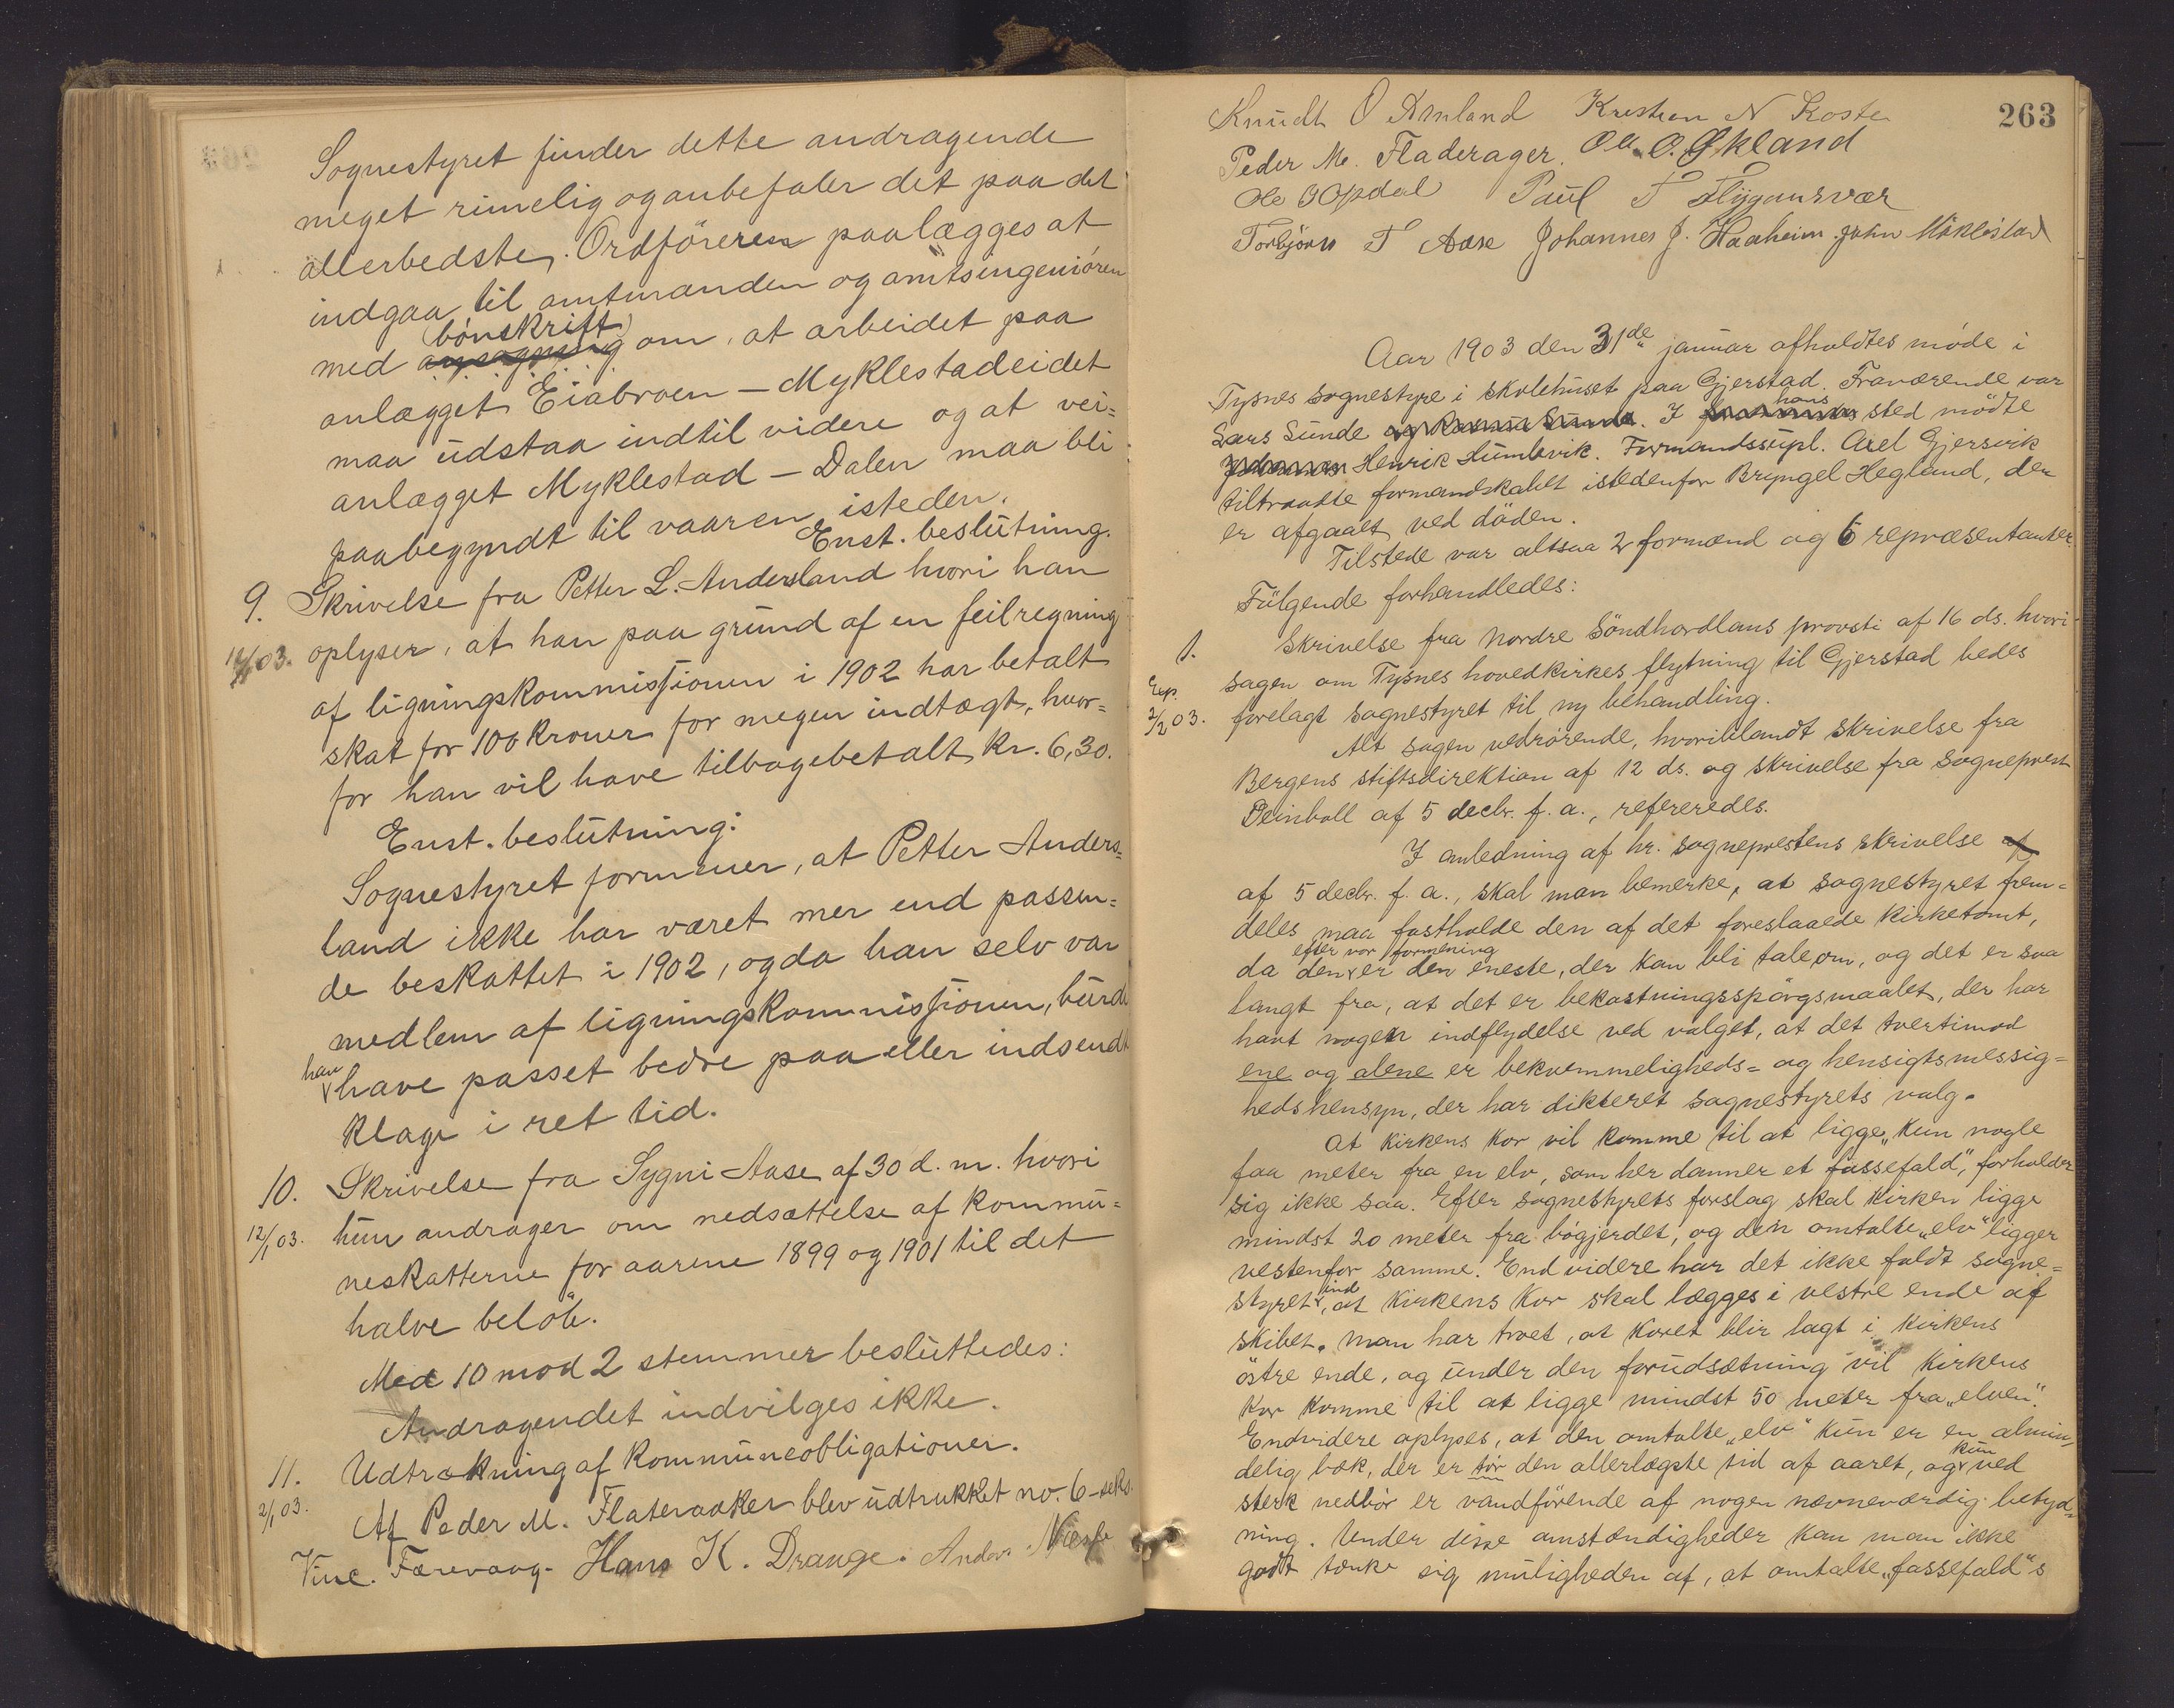 Sognestyret finder dette andragende
meget rimelig og anbefaler det paa det
allerbedste. Ordføreren paalægges at
indgaa til amtmanden og amtsingeniøren
(bønskrift)
med ansøgning om, at arbeidet paa
anlægget Eiabroen – Myklestadeidet
maa udstaa indtil videre og at vei=
anlægget Myklestad – Dalen maa bli
paabegyndt til vaaren isteden.
Enst. beslutning.
9. Skrivelse fra Petter L. Andersland hvori han
12/1 03. oplyser, at han paa grund af en feilregning
af ligningskommissionen i 1902 har betalt
skat for 100 kroner for megen indtægt, hvor=
for han vil have tilbagebetalt kr. 6,30.
Enst. beslutning:
Sognestyret formener, at Petter Anders=
land ikke har været mer end passen=
de beskattet i 1902, og da han selv var
medlem af ligningskommissionen, burde
han
have passet bedre paa eller indsendt
klage i ret tid.
10. Skrivelse fra Sygni Aase af 30 d. m. hvori
12/1 03. hun andrager om nedsættelse af kommu=
neskatterne for aarene 1899 og 1901 til det
halve beløb.
Med 10 mod 2 stemmer besluttedes:
Andragendet indvilges ikke.
11. Udtrækning af kommuneobligationer.
2/1 03. Af Peder M. Flateraaker blev udtrukket no. 6 – seks.
Vinc. Færevaag. Hans K. Drange. Anders
263
Knudt O Amland Kresten N Koste
Peder M. Fladerager. Ol. O. Økland
Ole O Opdal Paul T Flygansvær
Torbjørn T Aase Johannes J. Haaheim. John Myklestad
Aar 1903 den 31de januar afholdtes møde i
Tysnes sognestyre i skolehuset paa Gjerstad. Fraværende var
hans
Lars Sunde og Rasmus Sunde. I sted mødte
Johannes Henrik Humlevik. Formandssupl. Axel Gjersvik
tiltraadte formandskabet istedenfor Bryngel Hegland, der
er afgaaet ved døden.
Tilstede var altsaa 2 formænd og 6 repræsentanter.
Følgende forhandledes:
1. Skrivelse fra Nordre Søndhordlans provsti af 16 ds. hvori
Exp. sagen om Tysnes hovedkirkes flytning til Gjerstad bedes
2/2 03. forelagt sognestyret til ny behandling.
Alt sagen vedrørende, hvoriblandt skrivelse fra
Bergens stiftsdirektion af 12 ds. og skrivelse fra Sogneprest
Deinboll af 5 decbr. f. a., refereredes.
I anledning af hr. sogneprestens skrivelse af
af 5 decbr. f. a., skal man bemerke, at sognestyret frem=
deles maa fastholde den af det foreslaaede kirketomt,
efter vor formening
da den er den eneste, der kan bli tale om, og det er saa
langt fra, at det er bekostningsspørgsmaalet, der har
havt nogen indflydelse ved valget, at det tvertimod
ene og alene er bekvemmeligheds= og hensigtsmessig=
hedshensyn, der har dikteret sognestyrets valg.
At kirkens kor vil komme til at ligge „kun nogle
faa meter fra en elv, som her danner et fossefald“, forholder
sig ikke saa. Efter sognestyrets forslag skal kirken ligge
mindst 20 meter fra bøgjerdet, og den omtalte „elv“ ligger
vestenfor samme. End videre har det ikke faldt sogne=
ind
styret, at kirkens kor skal lægges i vestre ende af
skibet. Man har troet, at koret blir lagt i kirkens
østre ende, og under den forudsætning vil kirkens
kor komme til at ligge mindst 50 meter fra „elven“.
Endvidere oplyses, at den omtalte „elv“ kun er en almin=
kun
delig bæk, der er tør den allerlægste tid af aaret, og ved
sterk nedbør er vandførende af nogen nævneværdig betyd=
ning. Under disse omstændigheder kan man ikke
godt tænke sig muligheden af, at omtalte „fossefald“s